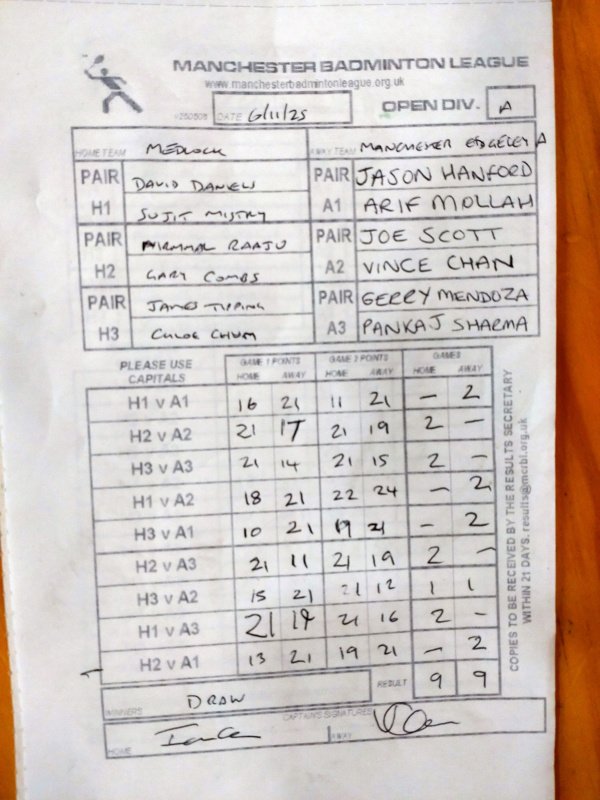 MANCHESTER BADMINTON LEAGUE
www.manchesterbadmintonleague.org.uk
DATE 6/11/25 OPEN DIV. A
HOME TEAM MEDLOCK AWAY TEAM MANCHESTER EDGELEY A
PAIR DAVID DANIELS PAIR JASON HANFORD
H1 SUJIT MISTRY A1 ARIF MOLLAH
PAIR NIRMMAL RAAJU PAIR JOE SCOTT
H2 GARY COMBS A2 VINCE CHAN
PAIR JAMES TIPPING PAIR GERRY MENDOZA
H3 CHLOE CHUM A3 PANKAJ SHARMA
PLEASE USE CAPITALS GAME 1 POINTS GAME 2 POINTS GAMES
HOME AWAY HOME AWAY HOME AWAY
H1 v A1 16 21 11 21 – 2
H2 v A2 21 17 21 19 2 –
H3 v A3 21 14 21 15 2 –
H1 v A2 18 21 22 24 – 2
H3 v A1 10 21 19 21 – 2
H2 v A3 21 11 21 19 2 –
H3 v A2 15 21 21 12 1 1
H1 v A3 21 19 21 16 2 –
H2 v A1 13 21 19 21 – 2
RESULT 9 9
WINNERS DRAW
CAPTAIN'S SIGNATURES
HOME AWAY
COPIES TO BE RECEIVED BY THE RESULTS SECRETARY
WITHIN 21 DAYS. results@mcrbl.org.uk